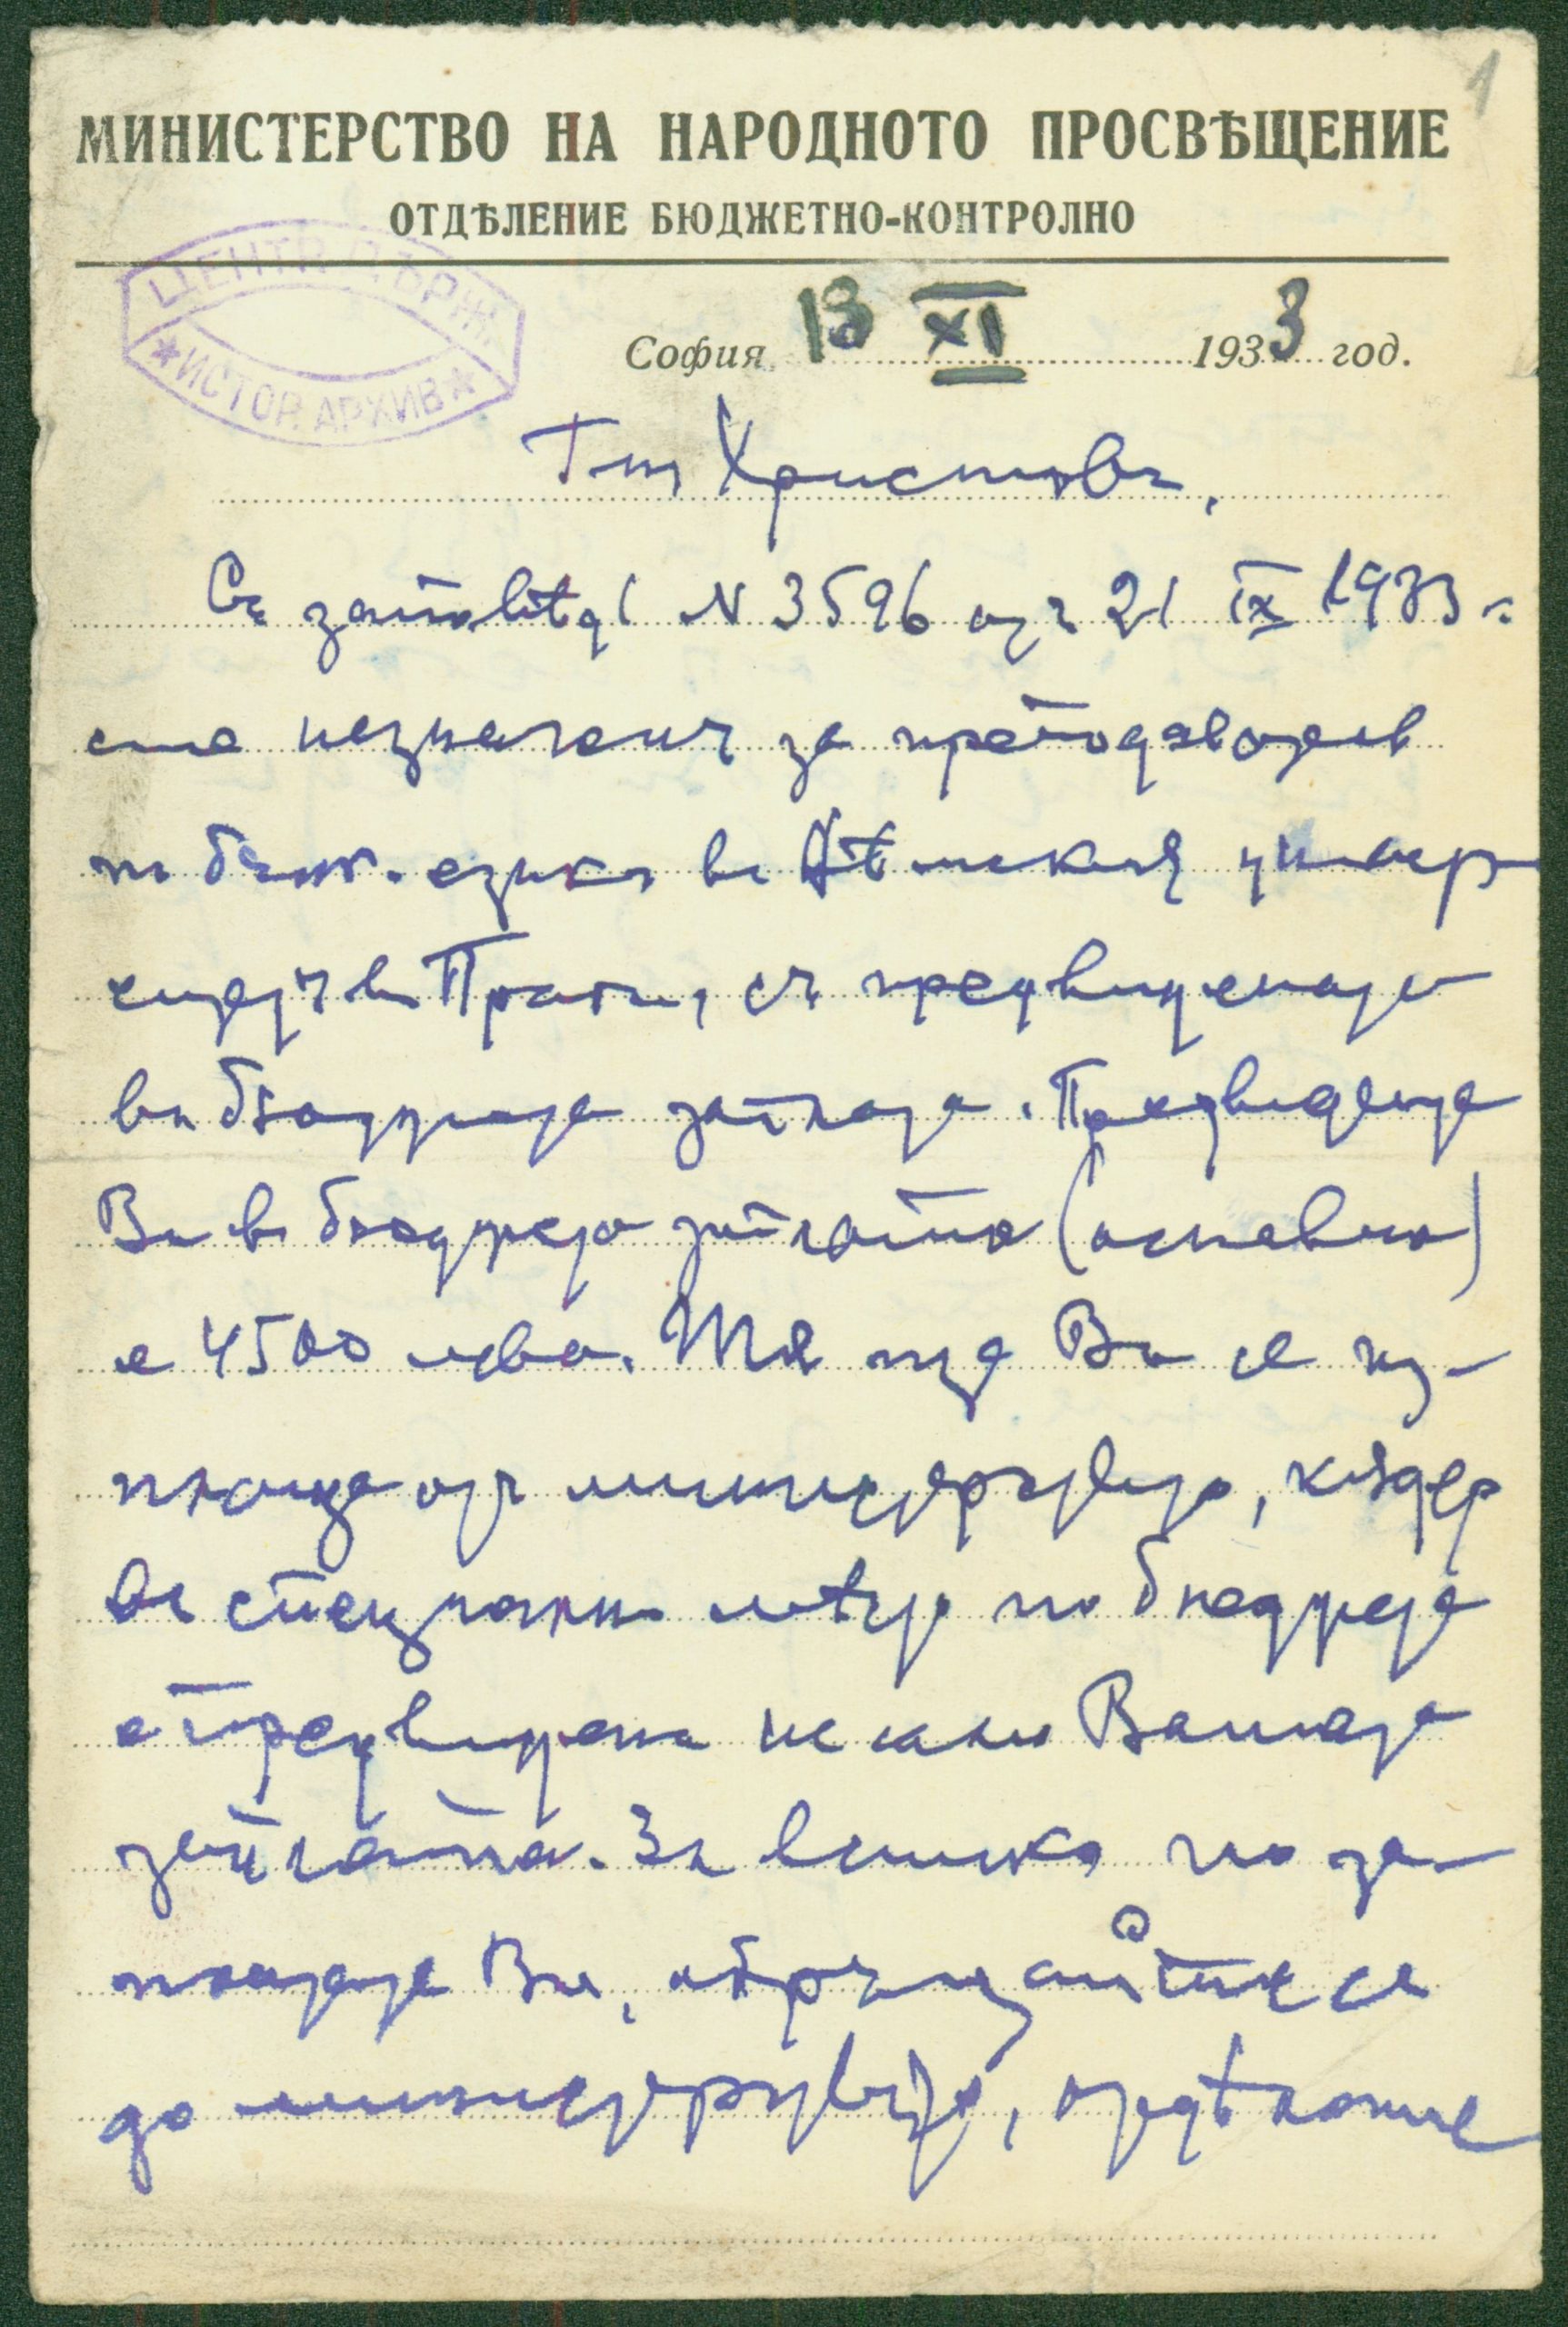 1
МИНИСТЕРСТВО НА НАРОДНОТО ПРОСВѢЩЕНИЕ
ОТДѢЛЕНИЕ БЮДЖЕТНО-КОНТРОЛНО
ЦЕНТР. ДЪРЖ.
★ИСТОР. АРХИВ★
София 13 XI 1933 год.
Г-нъ Христовъ,
Съ заповѣдь N 3596 отъ 21 IX 1933 г.
сте назначенъ за преподаватель
по бълг. езикъ въ Нѣмския универ
ситетъ въ Прага, съ предвидената
въ бюджета заплата. Предвидената
Ви въ бюджета заплата (основна)
е 4500 лева. Тя ще Ви се из-
плаща отъ министерството, където
въ специално мѣсто по бюджета
е предвидена и само Вашата
заплата. За всичко по за-
платата Ви, обръщайте се
до министерството, отдѣление